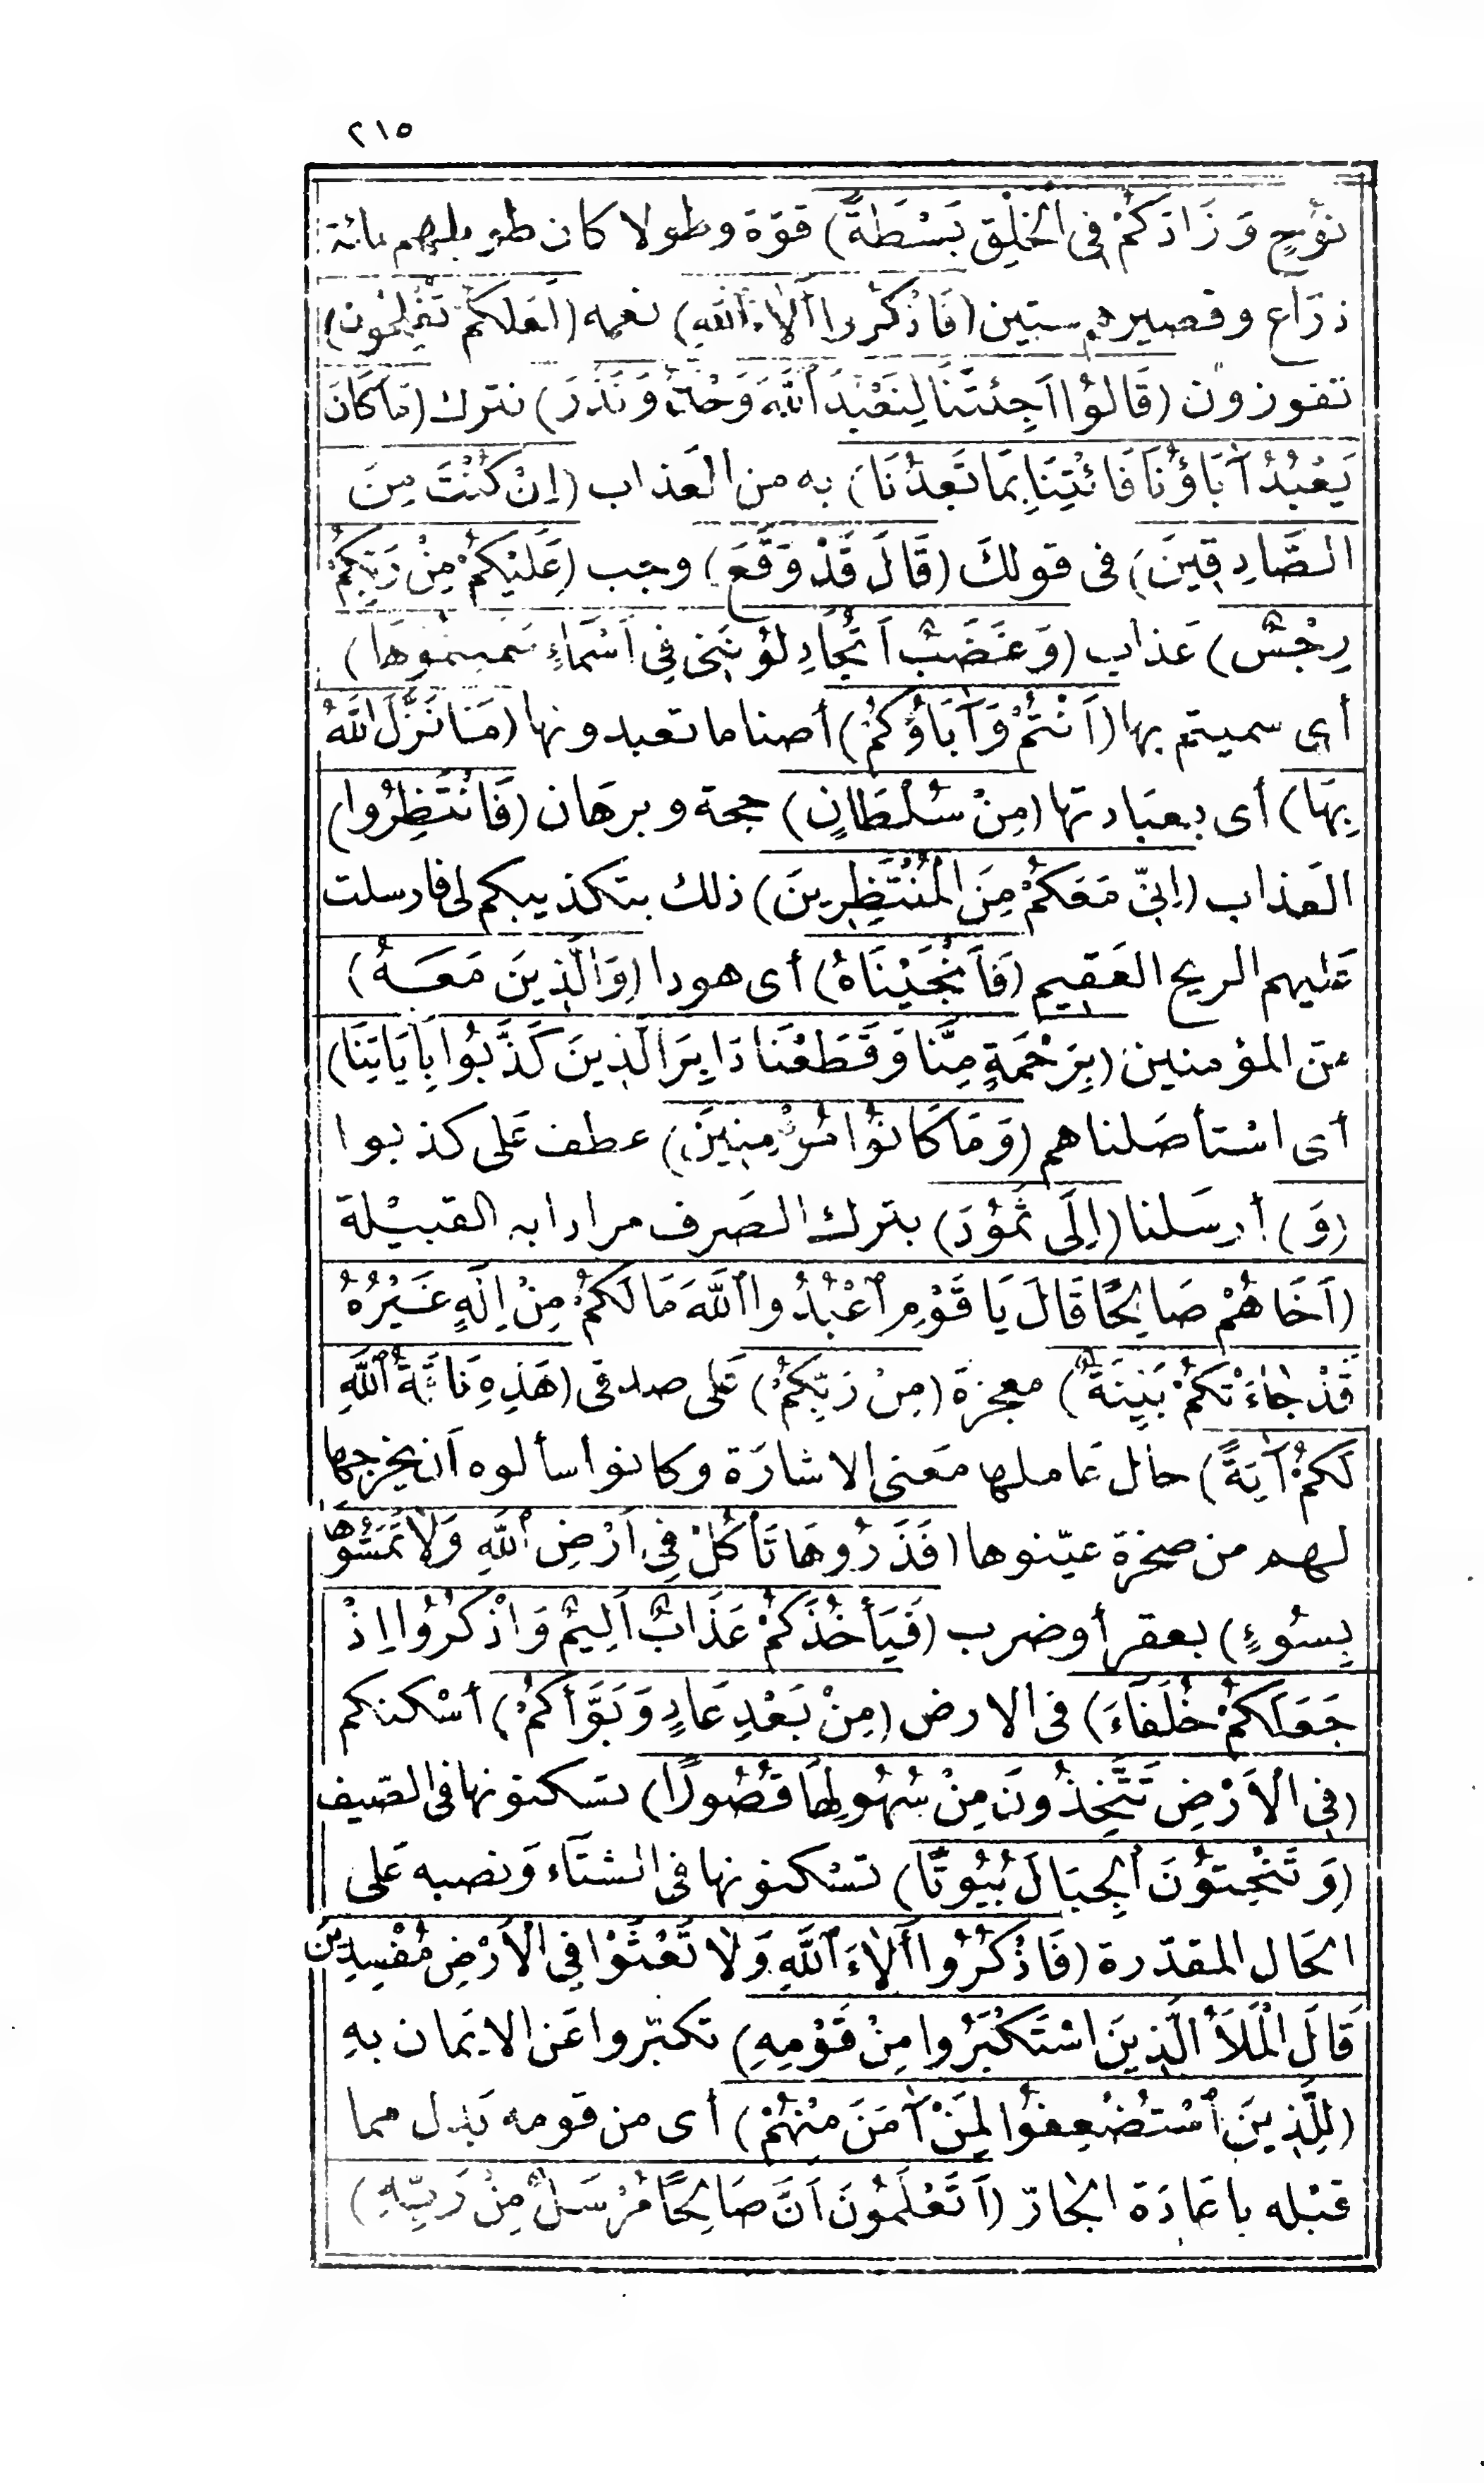 ٢١٥
نُوحٍ وَزَادَكُمْ فِي الْخَلْقِ بَسْطَةً) قوّة وطولا كان طويلهم مائة
ذراع وقصيرهم ستين (فَاذْكُرُوا آلَاءَ اللَّهِ) نعمه (لَعَلَّكُمْ تُفْلِحُونَ)
تفوزون (قَالُوا أَجِئْتَنَا لِنَعْبُدَ اللَّهَ وَحْدَهُ وَنَذَرَ) نترك (مَا كَانَ
يَعْبُدُ آبَاؤُنَا فَائْتِنَا بِمَا تَعِدُنَا) به من العذاب (إِنْ كُنْتَ مِنَ
الصَّادِقِينَ) فى قولك (قَالَ قَدْ وَقَعَ) وجب (عَلَيْكُمْ مِنْ رَبِّكُمْ
رِجْسٌ) عذاب (وَغَضَبٌ أَتُجَادِلُونَنِي فِي أَسْمَاءٍ سَمَّيْتُمُوهَا)
أى سميتم بها (أَنْتُمْ وَآبَاؤُكُمْ) أصناما تعبدونها (مَا نَزَّلَ اللَّهُ
بِهَا) أى بعبادتها (مِنْ سُلْطَانٍ) حجة وبرهان (فَانْتَظِرُوا)
العذاب (إِنِّي مَعَكُمْ مِنَ الْمُنْتَظِرِينَ) ذلك بتكذيبكم لى فارسلت
عليهم الريح العقيم (فَأَنْجَيْنَاهُ) أى هودا (وَالَّذِينَ مَعَهُ)
من المؤمنين (بِرَحْمَةٍ مِنَّا وَقَطَعْنَا دَابِرَ الَّذِينَ كَذَّبُوا بِآيَاتِنَا)
أى استأصلناهم (وَمَا كَانُوا مُؤْمِنِينَ) عطف على كذبوا
(وَ) أرسلنا (إِلَى ثَمُودَ) بترك الصرف مرادا به القبيلة
(أَخَاهُمْ صَالِحًا قَالَ يَا قَوْمِ ٱعْبُدُوا ٱللَّهَ مَا لَكُمْ مِنْ إِلَهٍ غَيْرُهُ
قَدْ جَاءَتْكُمْ بَيِّنَةٌ) معجزة (مِنْ رَبِّكُمْ) على صدقى (هَذِهِ نَاقَةُ ٱللَّهِ
لَكُمْ آيَةً) حال عاملها معنى الاشارة وكانوا سألوه أن يخرجها
لهم من صخرة عيّنوها (فَذَرُوهَا تَأْكُلْ فِي أَرْضِ ٱللَّهِ وَلَا تَمَسُّوهَا
بِسُوءٍ) بعقر أو ضرب (فَيَأْخُذَكُمْ عَذَابٌ أَلِيمٌ وَاذْكُرُوا إِذْ
جَعَلَكُمْ خُلَفَاءَ) فى الارض (مِنْ بَعْدِ عَادٍ وَبَوَّأَكُمْ) أسكنكم
(فِي الْأَرْضِ تَتَّخِذُونَ مِنْ سُهُولِهَا قُصُورًا) تسكنونها فى الصّيف
(وَتَنْحِتُونَ ٱلْجِبَالَ بُيُوتًا) تسكنونها فى الشتاء ونصبه على
الحال المقدّرة (فَاذْكُرُوا آلَاءَ ٱللَّهِ وَلَا تَعْثَوْا فِي الْأَرْضِ مُفْسِدِينَ
قَالَ الْمَلَأُ الَّذِينَ اسْتَكْبَرُوا مِنْ قَوْمِهِ) تكبّروا عن الايمان به
(لِلَّذِينَ ٱسْتُضْعِفُوا لِمَنْ آمَنَ مِنْهُمْ) أى من قومه بدل مما
قبله باعادة الجارّ (أَتَعْلَمُونَ أَنَّ صَالِحًا مُرْسَلٌ مِنْ رَبِّهِ)